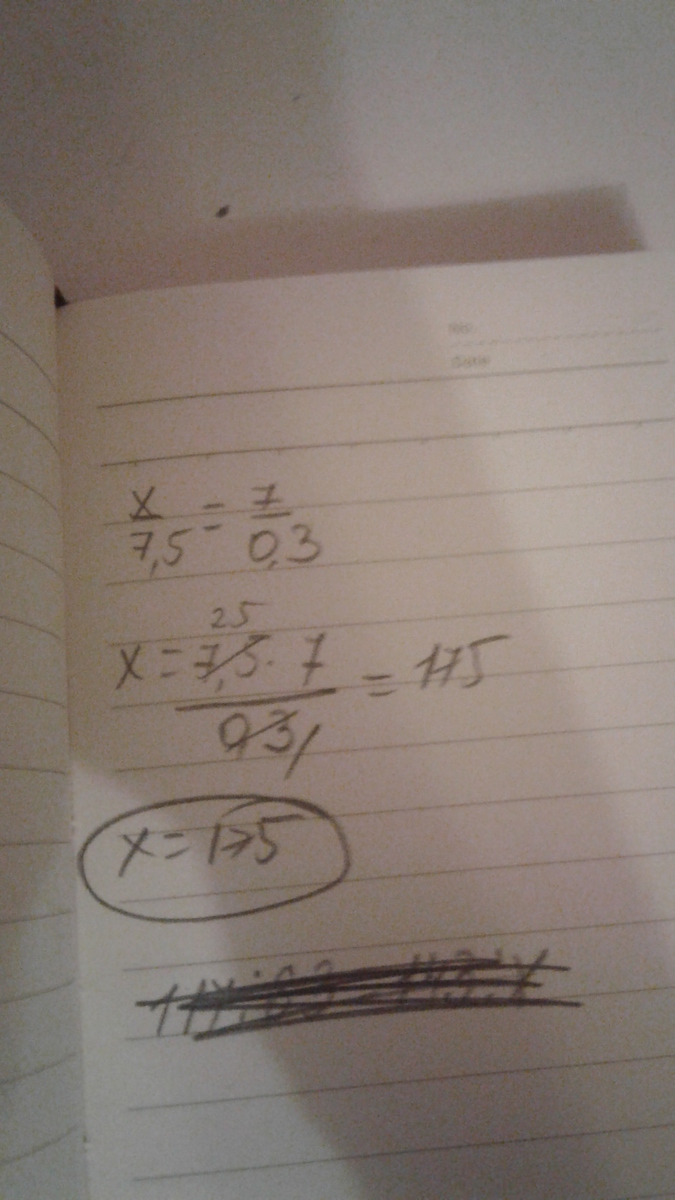 No
Date
x/7,5 = 7/0,3
25
x = 7,5 · 7 / 0,3 = 175
x = 175